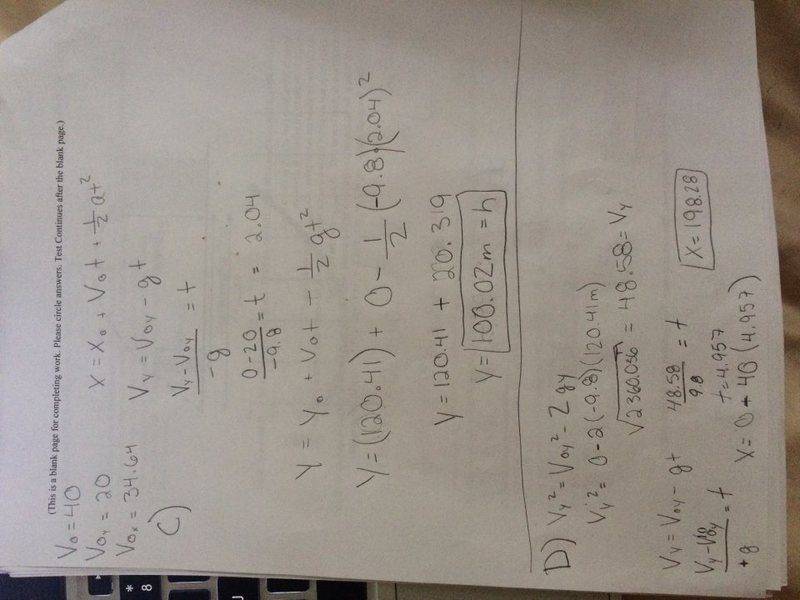 (This is a blank page for completing work. Please circle answers. Test Continues after the blank page.)
V₀ = 40
V₀y = 20
V₀x = 34.64
X = X₀ + V₀t + ½ at²
C)
Vy = V₀y - gt
Vy - V₀y / -g = t
0-20 / -9.8 = t = 2.04
Y = Y₀ + V₀t - ½ gt²
Y = (120.41) + 0 - ½ (-9.8)(2.04)²
Y = 120.41 + 20.319
Y = 100.02m = h
D) Vy² = V₀y² - 2gy
Vy² = 0 - 2(-9.8)(120.41m)
√2360.036 = 48.58 = Vy
Vy = V₀y - gt
Vy - V₀y / +g = t
48.58 / 9.8 = t
t = 4.957
X = 0 + 40 (4.957)
X = 198.28
* 8